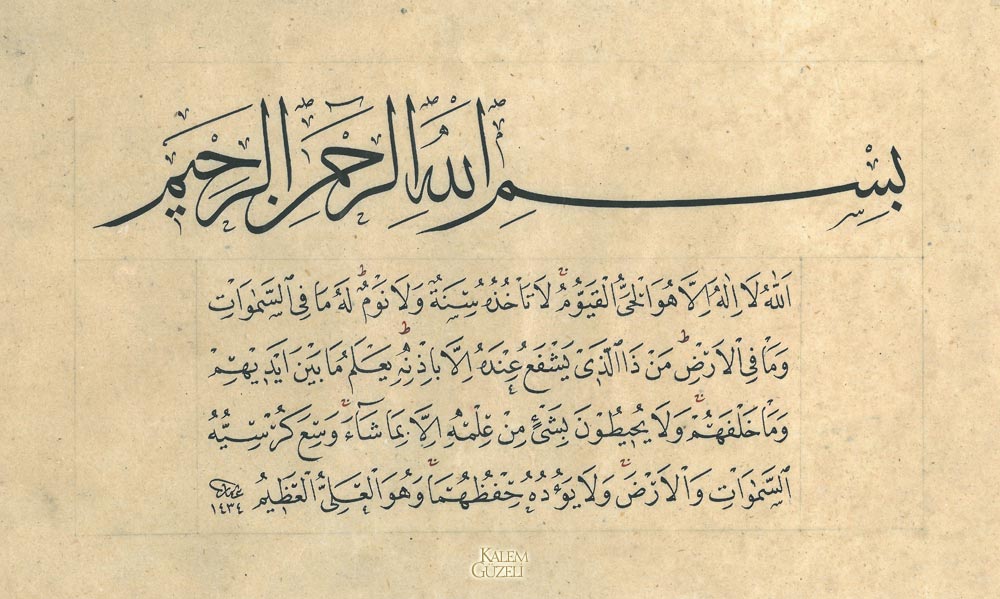 بِسْمِ اللّٰهِ الرَّحْمٰنِ الرَّحِيمِ
اَللّٰهُ لَا اِلٰهَ اِلَّا هُوَ الْحَيُّ الْقَيُّومُ ۚ لَا تَأْخُذُهُ سِنَةٌ وَلَا نَوْمٌ ۜ لَهُ مَا فِي السَّمٰوَاتِ
وَمَا فِي الْاَرْضِ ۜ مَنْ ذَا الَّذِي يَشْفَعُ عِنْدَهُ اِلَّا بِاِذْنِهِ ۜ يَعْلَمُ مَا بَيْنَ اَيْدِيهِمْ
وَمَا خَلْفَهُمْ ۚ وَلَا يُحِيطُونَ بِشَيْءٍ مِنْ عِلْمِهِ اِلَّا بِمَا شَاءَ ۚ وَسِعَ كُرْسِيُّهُ
السَّمٰوَاتِ وَالْاَرْضَ ۚ وَلَا يَؤُدُهُ حِفْظُهُمَا ۚ وَهُوَ الْعَلِيُّ الْعَظِيمُ
١٤٣٤
KALEM
GÜZELİ